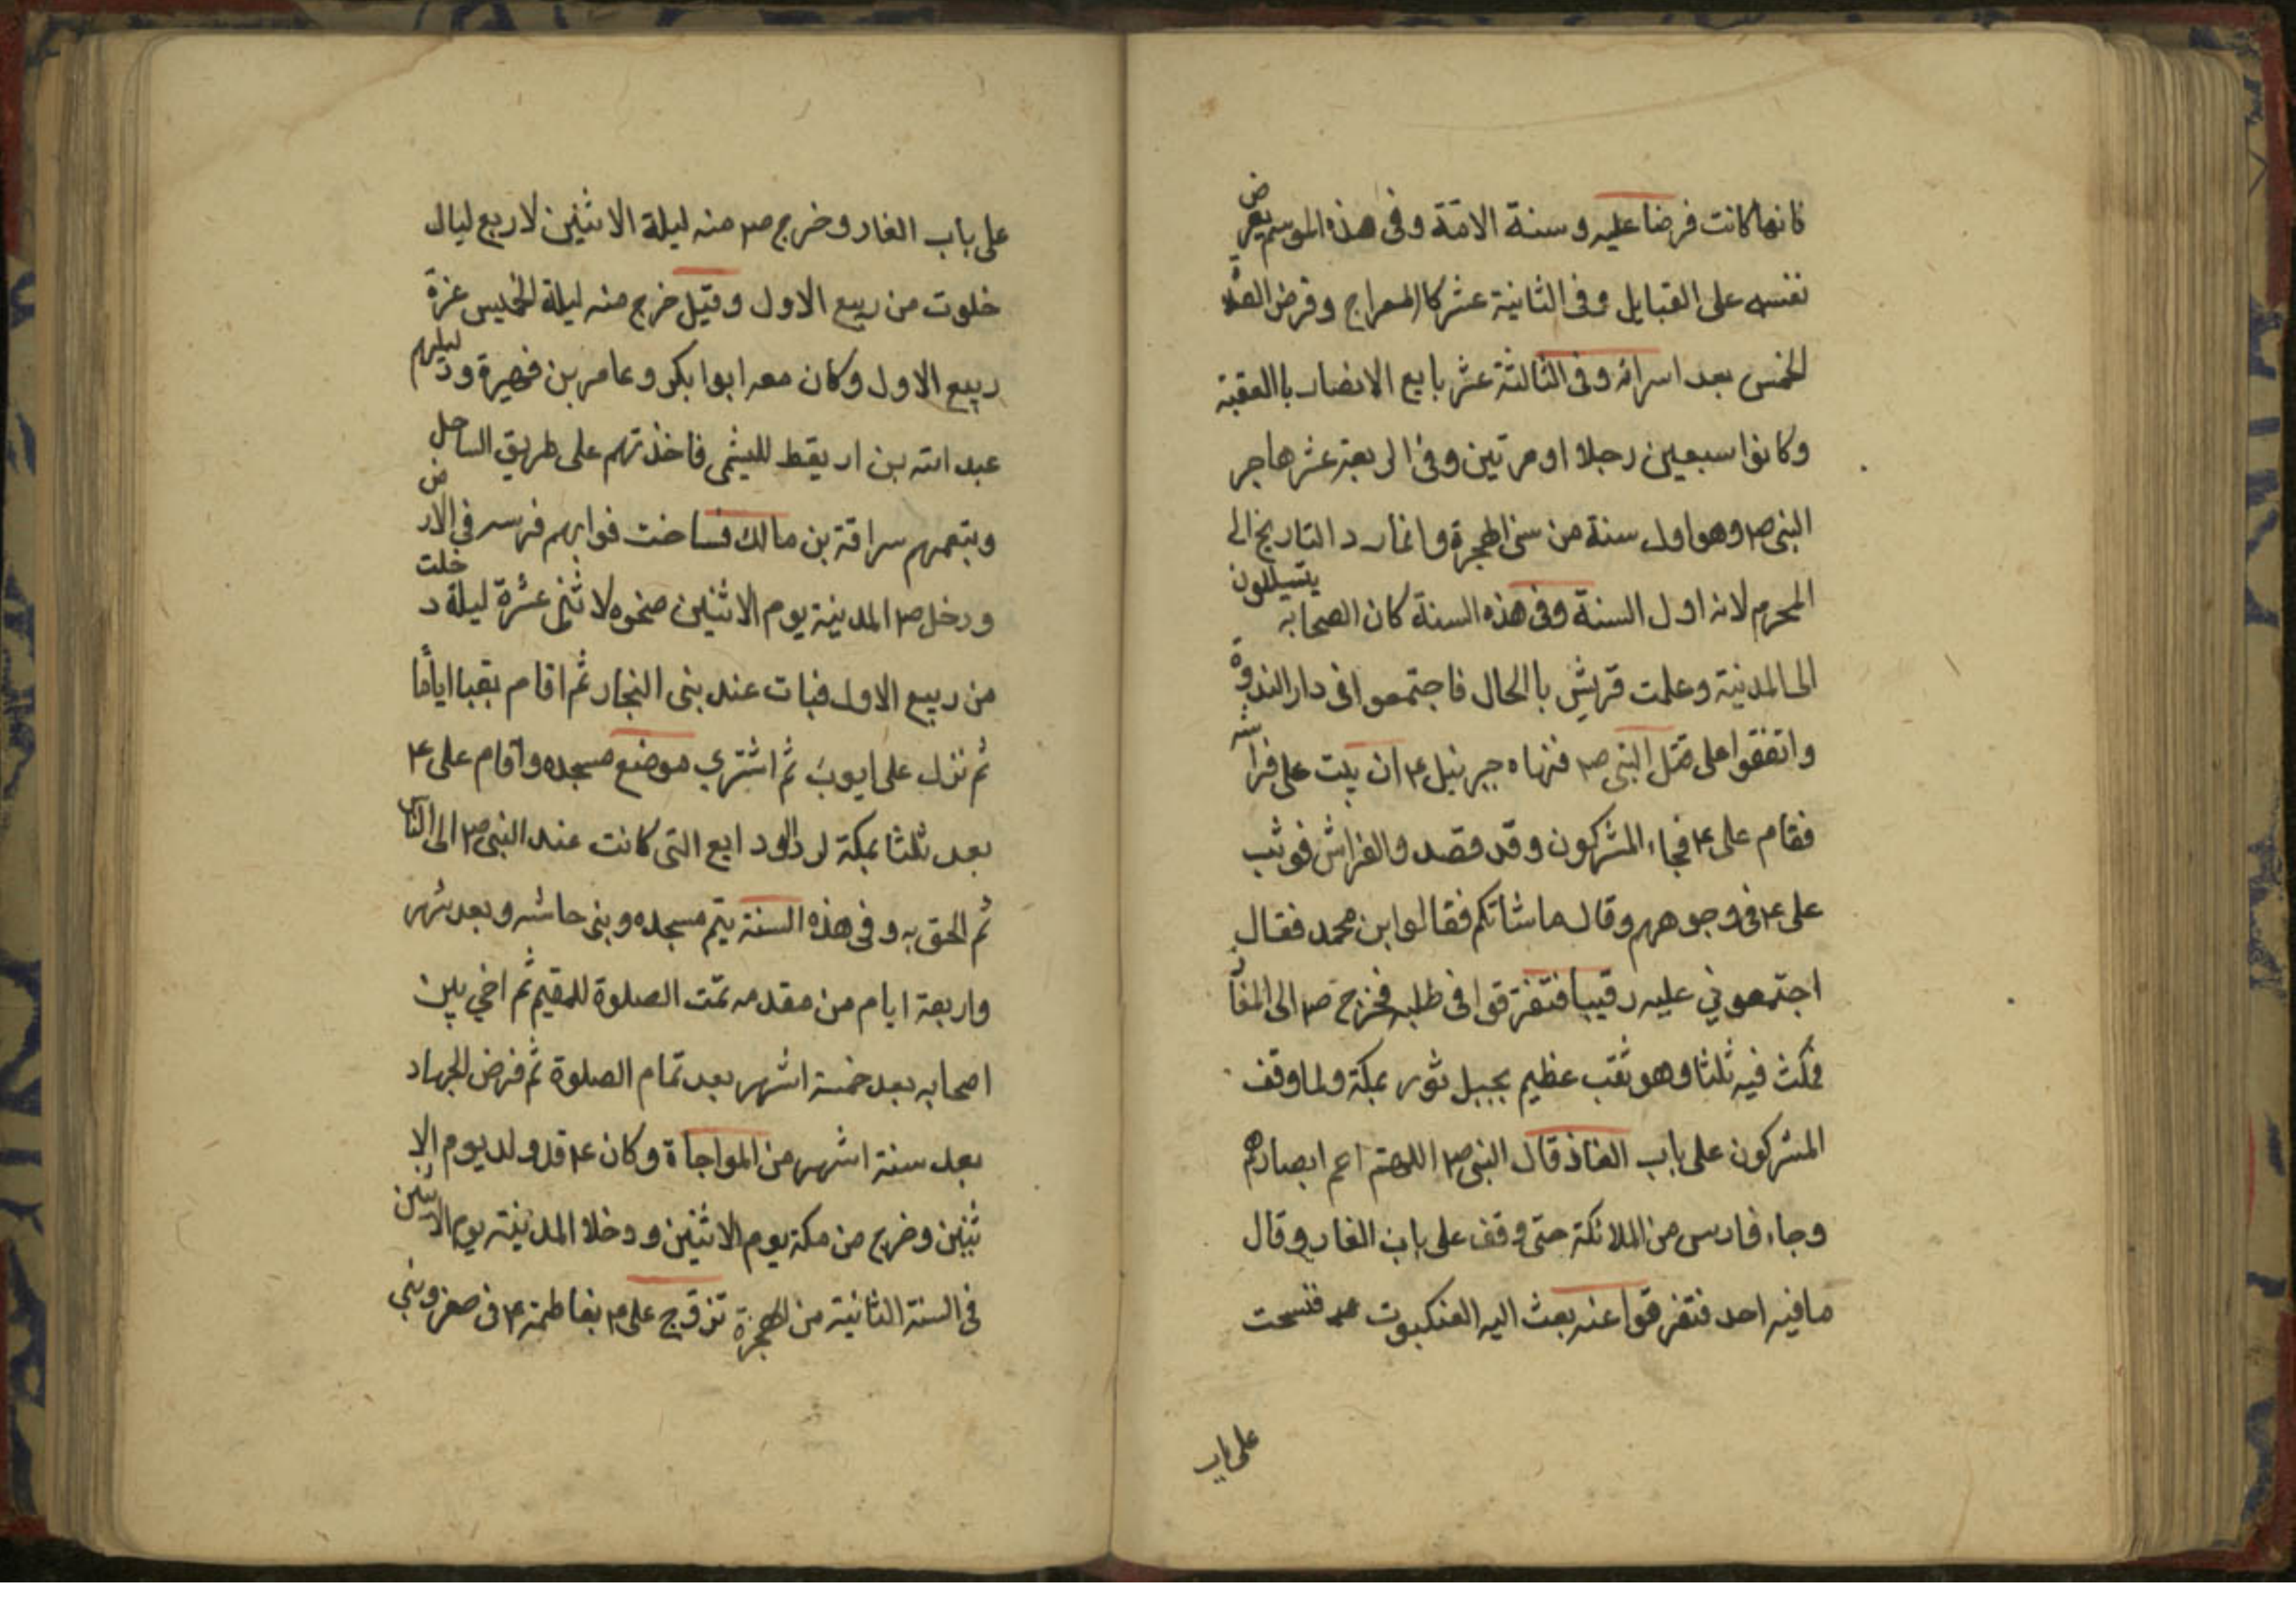 فانها كانت فرضا عليه و سنة الامّة و فى هذه الموسم يعرض
نفسه على القبايل و فى الثانية عشر كا المعراج و فرض الصلوة
الخمس بعد اسرائه و فى الثالثة عشر بايع الانصار باالعقبة
و كانوا سبعين رجلا او مرتين و فى الرابعة عشر هاجر
النبى ص و هو اول سنة من سنى الهجرة و انما رد التاريخ الى
المحرم لانه اول السنة و فى هذه السنة كان الصحابة يتسللون
الى المدينة و علمت قريش باالحال فاجتمعوا فى دار الندوة
و اتفقوا على قتل النبى ص فنهاه جبرئيل ع ان يبت على فراشه
فقام على ع فجاء المشركون و قد قصد و الفراش فوثب
على ع فى وجوههم و قال ما شانكم فقالوا اين محمد فقال
اجتمعونى عليه رقيبا فتفرقوا فى طلبه فخرج ص الى المغار
فمكث فيه ثلثا و هو ثقب عظيم بجبل ثور بمكة و لما وقف
المشركون على باب الغار قال النبى ص اللهم اعم ابصارهم
و جاء فارس من الملائكة حتى وقف على باب الغار و قال
ما فيه احد فتفرقوا عنه بعث اليه العنكبوت فنسجت
على باب
على باب الغار و خرج ص منه ليلة الاثنين لاربع ليال
خلوت من ربيع الاول و قيل خرج منه ليلة الخميس غرة
ربيع الاول و كان معه ابوا بكر و عامر بن فهيرة و دليلهم
عبد الله بن اريقط لليثمى فاخذ تهم على طريق الساحل
و يتبعهم سراقة بن مالك فساخت قوايم فرسه فى الارض
و دخل ص المدينة يوم الاثنين ضحوه لاثنى عشرة ليلة خلت
من ربيع الاول فبات عند بنى النجار ثم اقام بقبا اياما
ثم نزل على ايوب ثم اشترى موضع مسجده و اقام على ع
بعد ثلثا بمكة لرد الودايع التى كانت عند النبى ص الى الناس
ثم الحق به و فى هذه السنة يتم مسجده و بنى و بعد شهر
و اربعة ايام من مقدمه تمت الصلوة للمقيم ثم اخى بين
اصحابه بعد خمسة اشهر بعد تمام الصلوة ثم فرض الجهاد
بعد ستة اشهر من المواجاة و كان ع قد ولد يوم الا
ثنين و خرج من مكة يوم الاثنين و دخلا المدينة يوم الاثنين
فى السنة الثانية من الهجرة تزوج على ع بفاطمة ع فى صفر و بنى